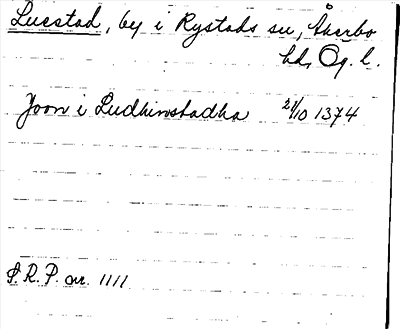 Lucstad, by i Rystads sn, Åkerbo
hd, Ög. l.
Joon i Ludhinstadha 21/10 1374
S.R.P. nr. 1111